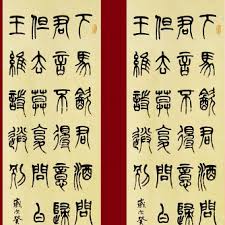 下馬飲君酒問
君言不得意歸
但去莫復問白
王維詩送別
下馬飲君酒問
君言不得意歸
但去莫復問白
王維詩送別